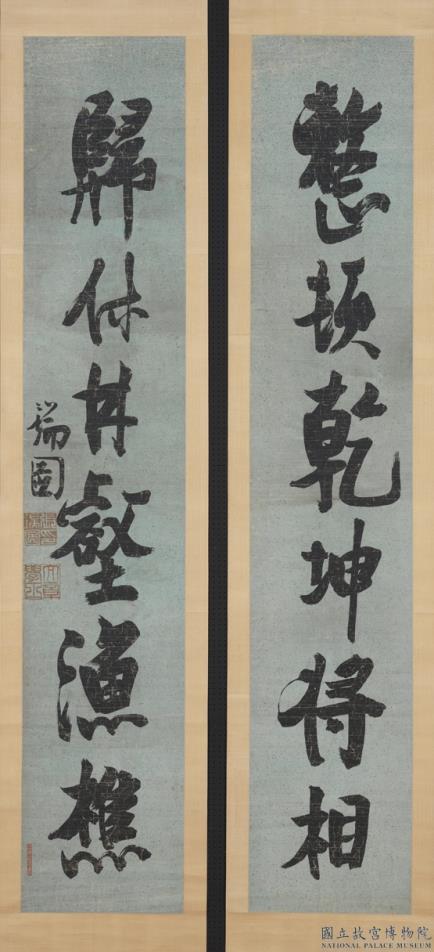 整頓乾坤將相
歸休丘壑漁樵
瑞圖
國立故宮博物院
NATIONAL PALACE MUSEUM